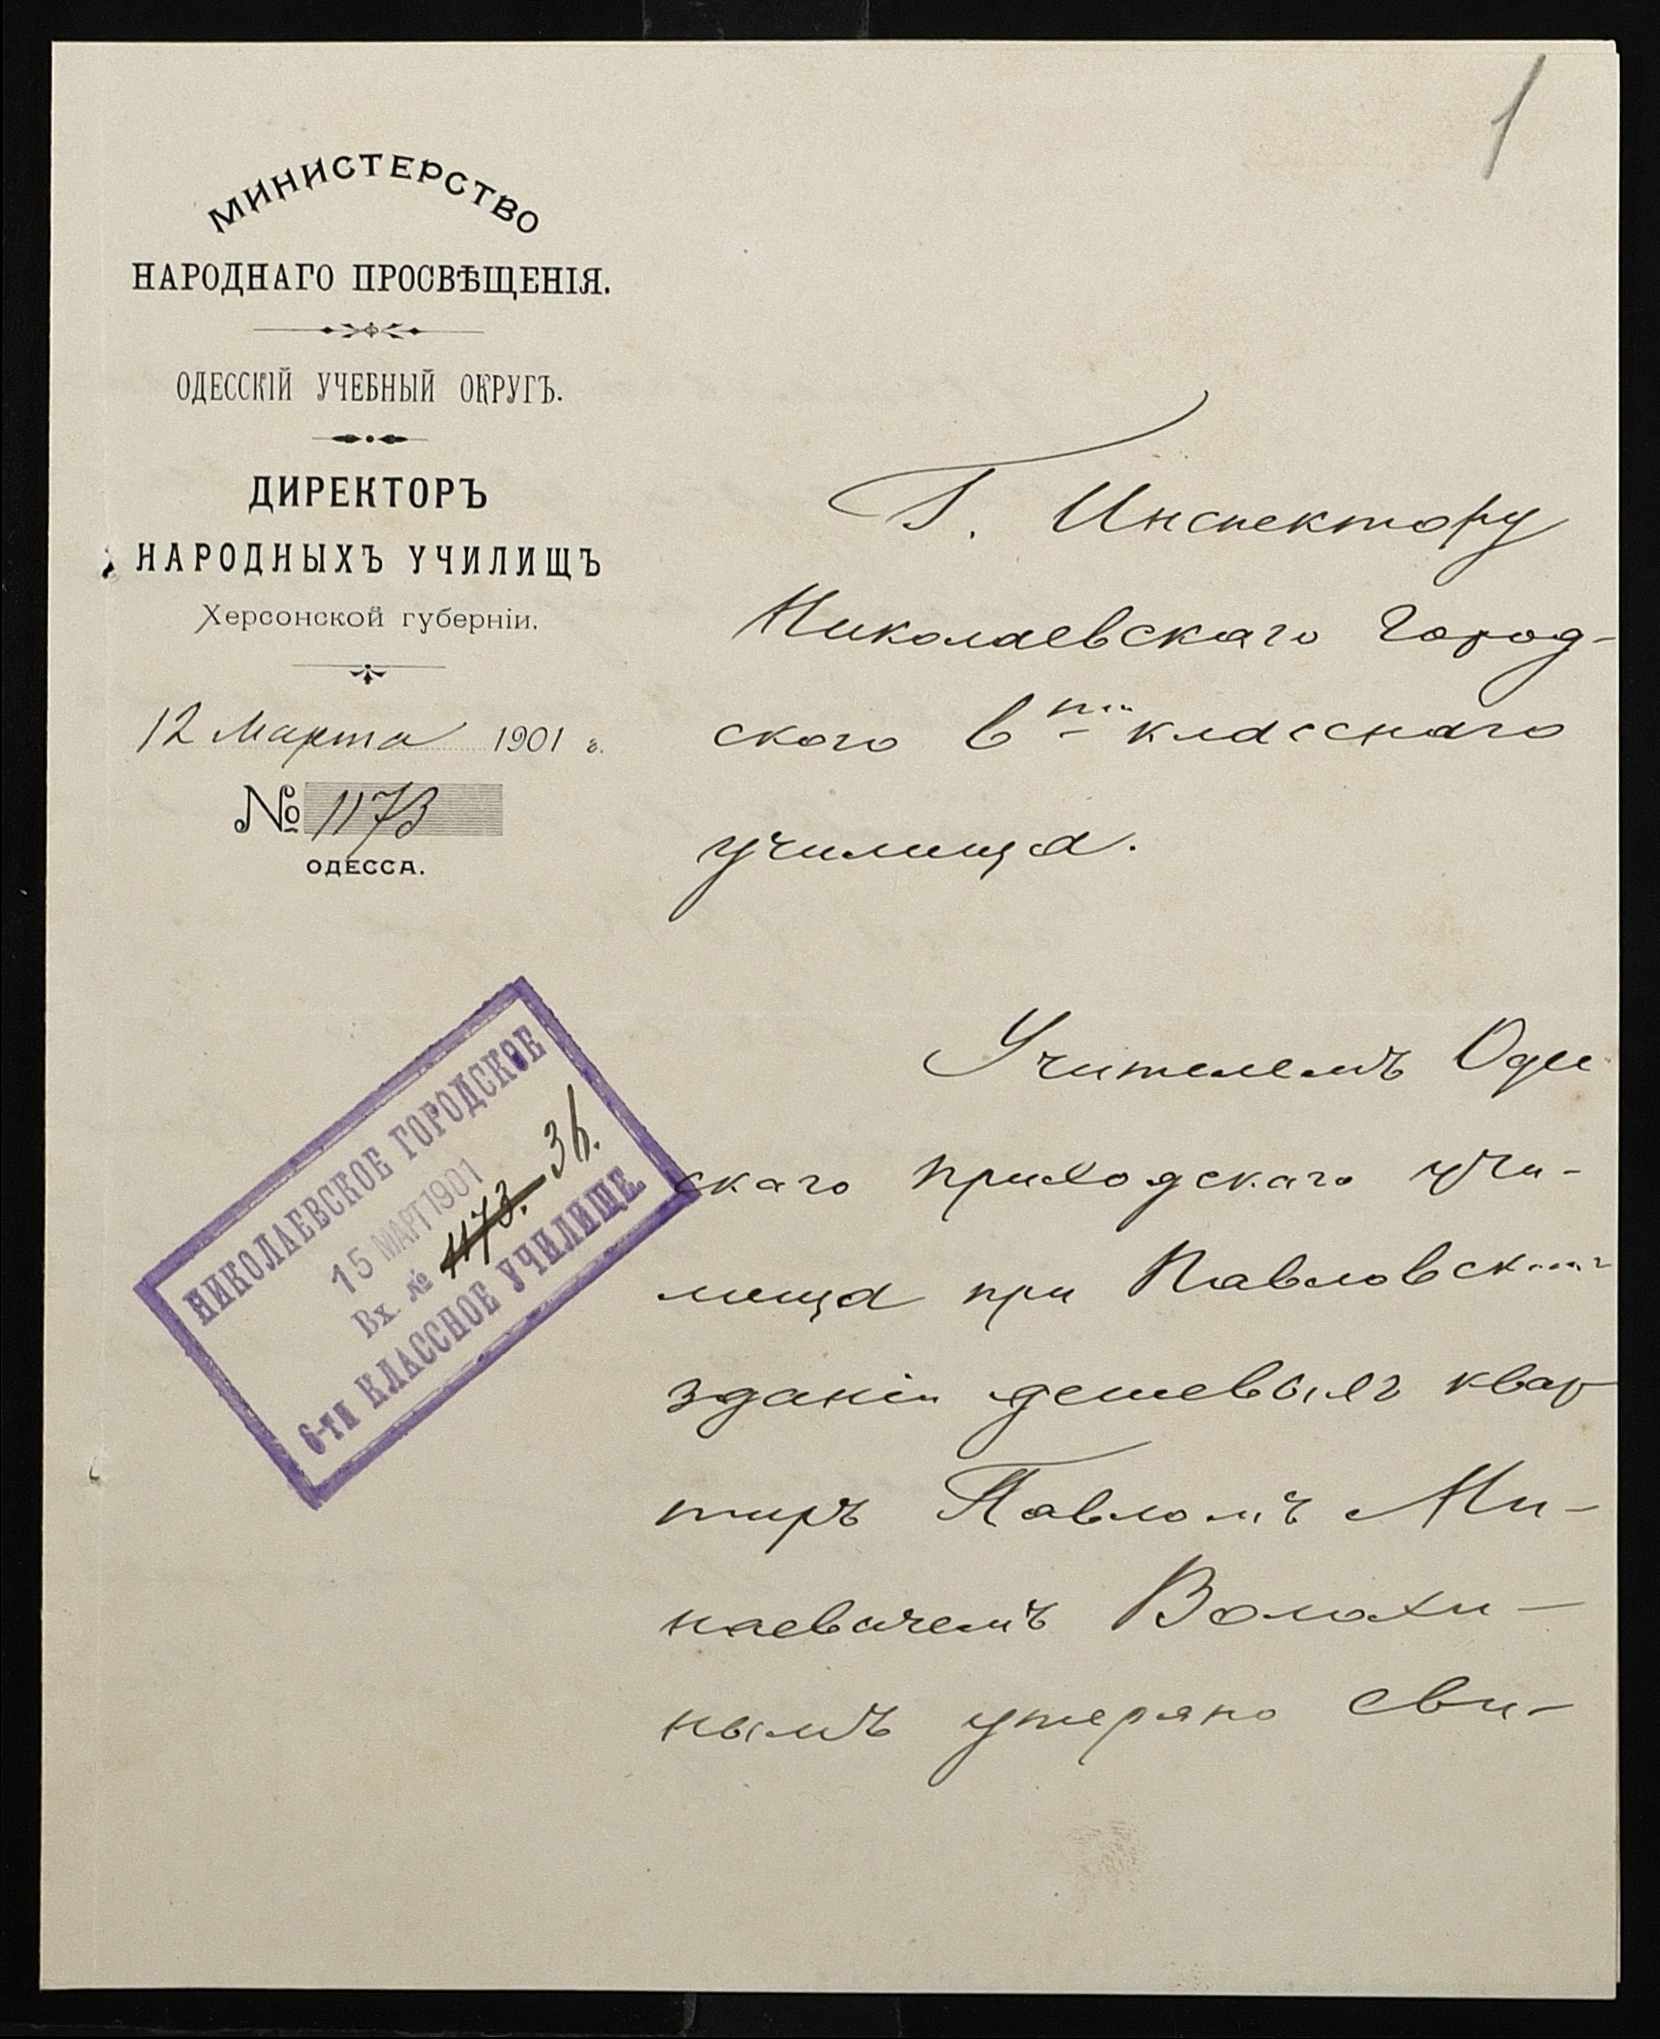 1
МИНИСТЕРСТВО
НАРОДНАГО ПРОСВѢЩЕНІЯ.
ОДЕССКІЙ УЧЕБНЫЙ ОКРУГЪ.
ДИРЕКТОРЪ
НАРОДНЫХЪ УЧИЛИЩЪ
Херсонской губерніи.
12 Марта 1901 г.
№ 1173
ОДЕССА.
Г. Инспектору
Николаевскаго Город-
ского 6ти классного
училища.
НИКОЛАЕВСКОЕ ГОРОДСКОЕ
15 МАРТ 1901
Вх. № 1173. 36.
6-ТИ КЛАССНОЕ УЧИЛИЩЕ
Учителемъ Одес
скаго приходскаго учи-
лища при Павловскомъ
зданіи дешевыхъ квар
тиръ Павломъ Ми-
наевичемъ Волохи-
нымъ утеряно сви-